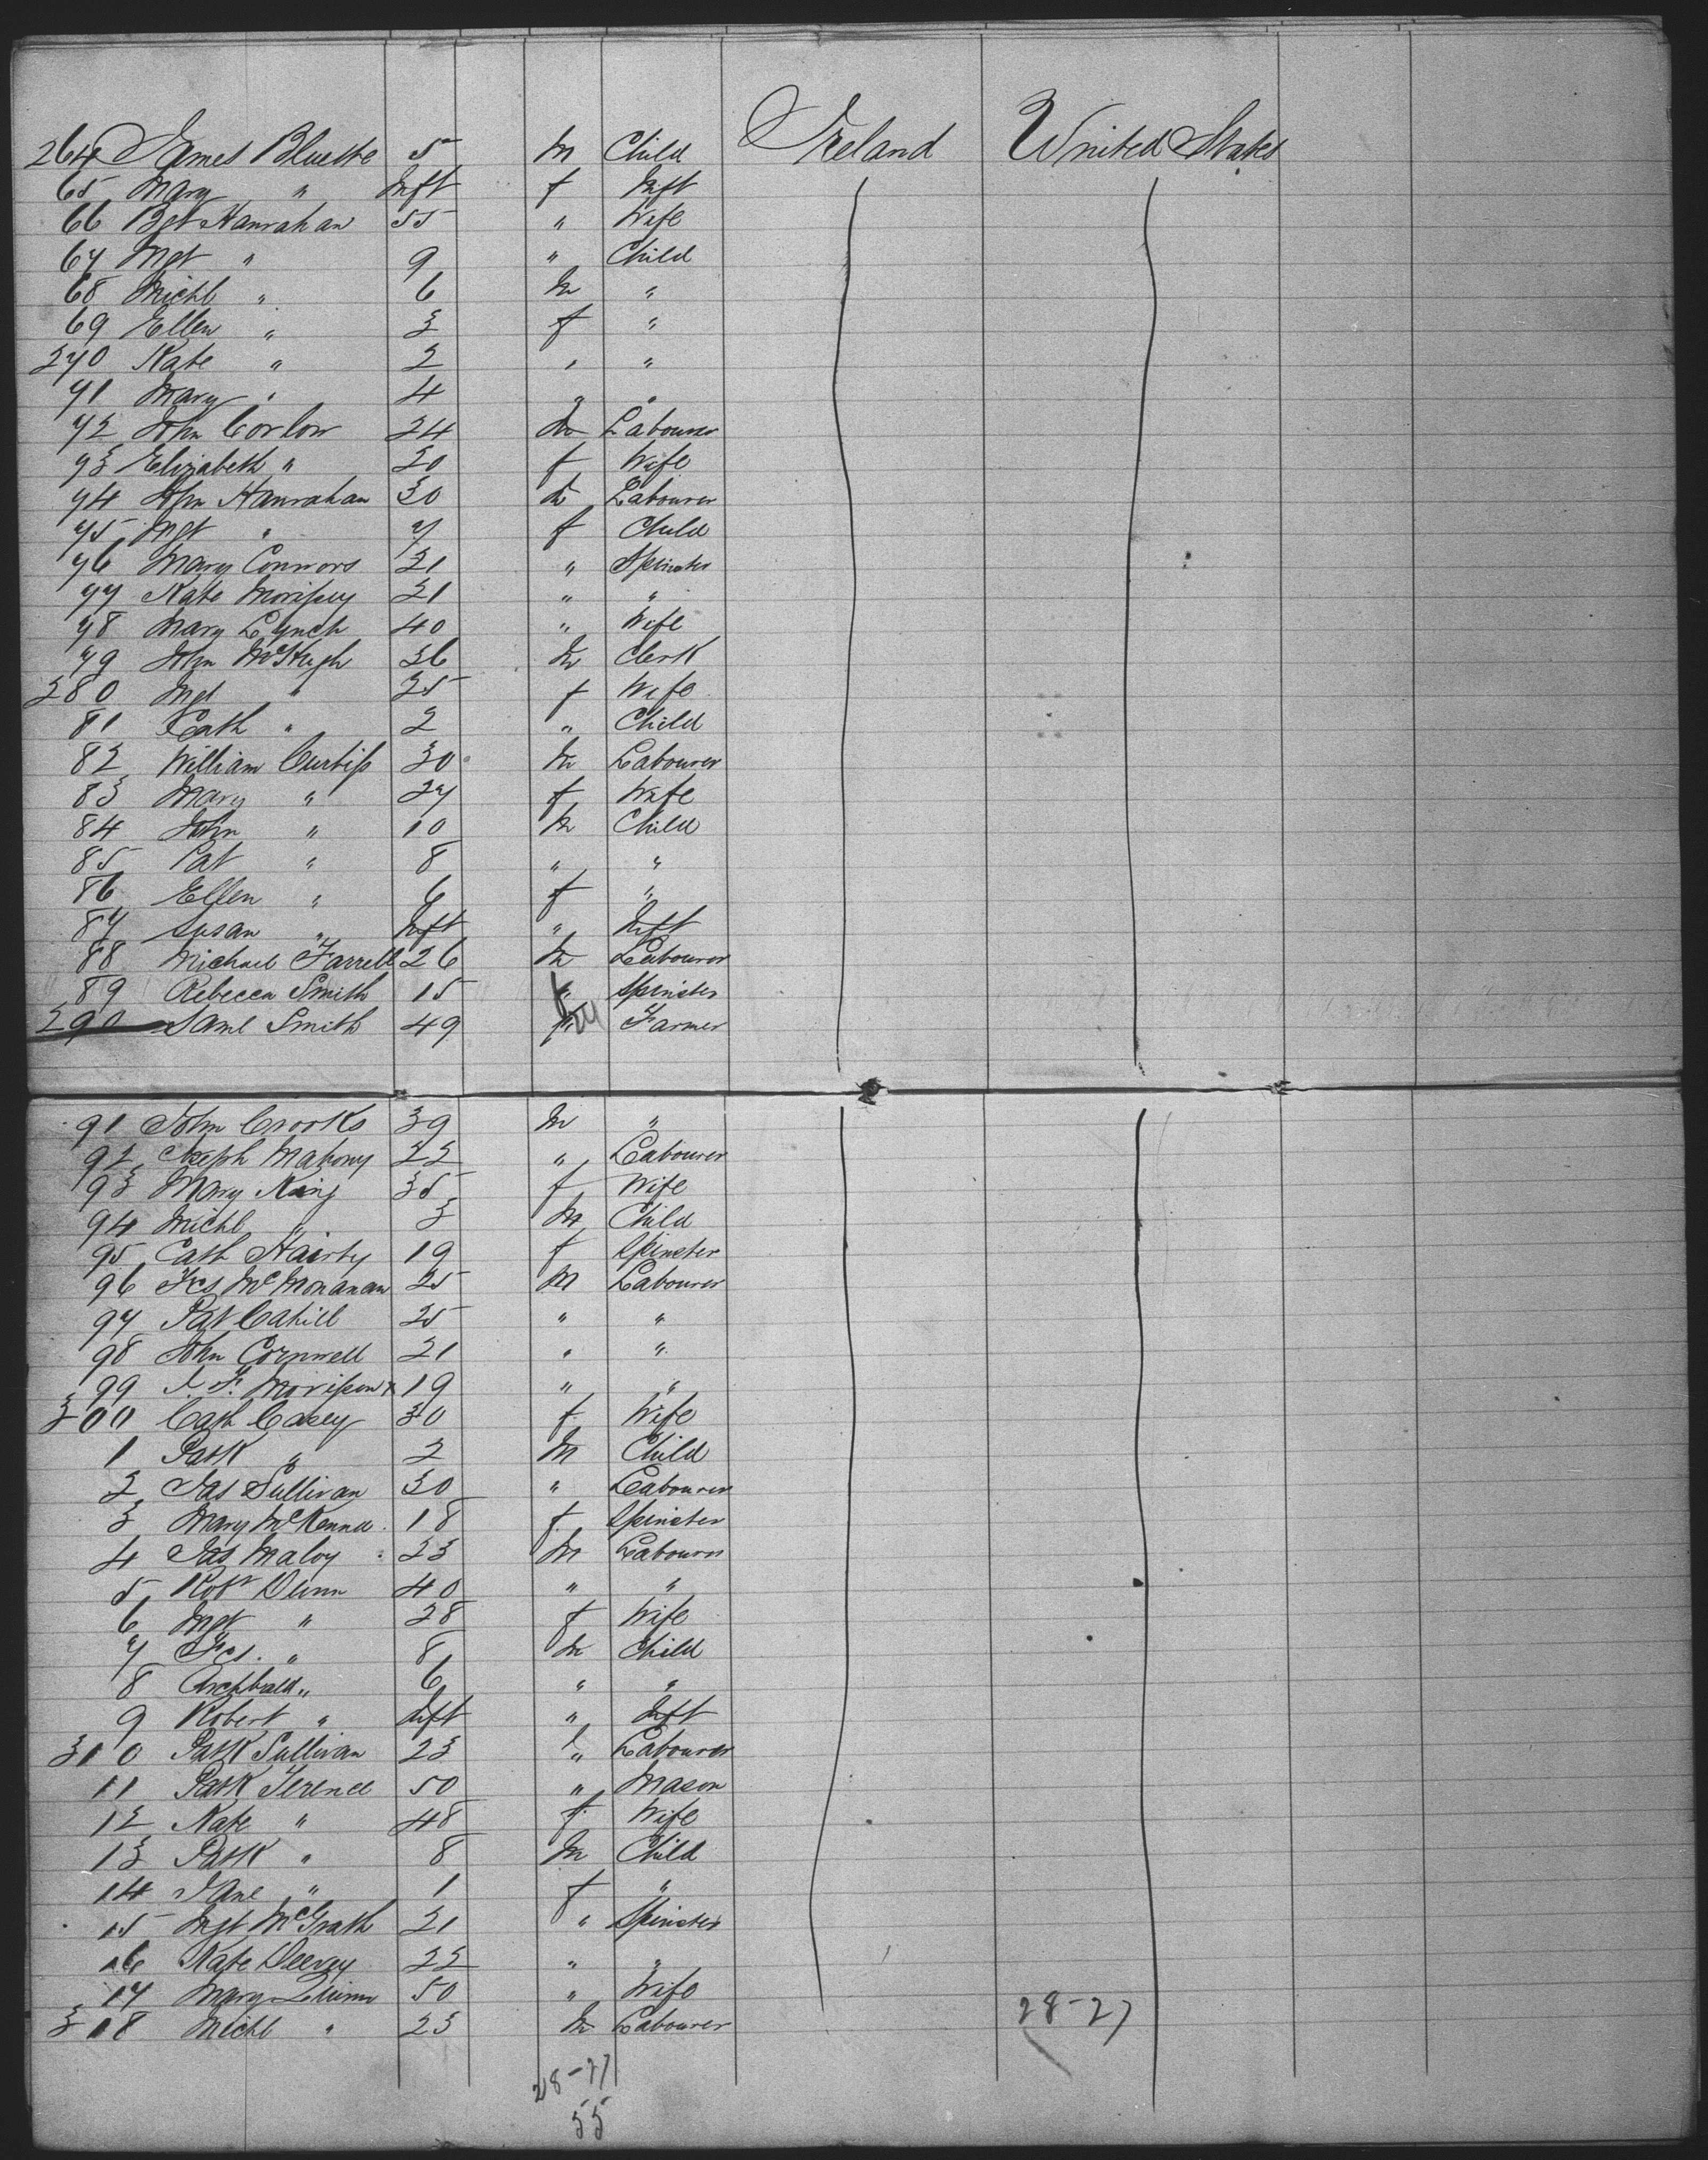 264 James Bluette 5 M Child Ireland United States
65 Mary " Inft f Inft
66 Bgt Hanrahan 55 " Wife
67 Mgt " 9 " Child
68 Michl " 6 M "
69 Ellen " 3 f "
270 Kate " 2 " "
71 Mary " 4 " "
72 John Conlon 24 M Labourer
73 Elizabeth " 20 f Wife
74 John Hanrahan 30 M Labourer
75 Mgt " 7 f Child
76 Mary Connors 21 " Spinster
77 Kate Morissey 21 " "
78 Mary Lynch 40 " Wife
79 John McHugh 36 M Clerk
280 Mgt " 25 f Wife
81 Cath " 2 " Child
82 William Curtiss 30 M Labourer
83 Mary " 27 f Wife
84 John " 10 M Child
85 Pat " 8 " "
86 Ellen " 6 f "
87 Susan " Inft " Inft
88 Michael Farrell 26 M Labourer
89 Rebecca Smith 15 f Spinster
290 Saml Smith 49 M Farmer
91 John Crooks 39 M "
92 Joseph Mahony 22 " Labourer
93 Mary King 35 f Wife
94 Michl " 3 M Child
95 Cath Hairty 19 f Spinster
96 Fcs McMonanan 25 M Labourer
97 Pat Cahill 25 " "
98 John Cornwell 21 " "
99 J. F. Morisson 19 " "
300 Cath Casey 30 f Wife
1 Patk " 2 M Child
2 Jas Sullivan 30 " Labourer
3 Mary McKenna 18 f Spinster
4 Jas Maloy 23 M Labourer
5 Robt Dunn 40 " "
6 Mgt " 28 f Wife
7 Fcs. " 8 M Child
8 Archbald " 6 " "
9 Robert " Inft " Inft
310 Patk Sullivan 23 " Labourer
11 Patk Terence 50 " Mason
12 Kate " 48 f Wife
13 Patk " 8 M Child
14 Jane " 1 f "
15 Mgt McGrath 21 " Spinster
16 Kate Deevey 22 " "
17 Mary Quinn 50 " Wife
318 Michl " 23 M Labourer
28-27
28-27
55